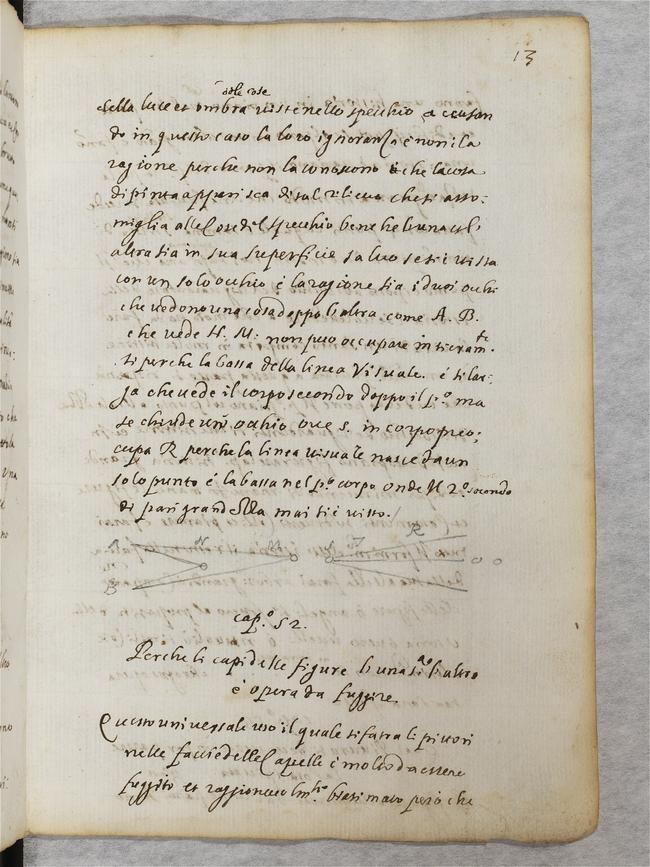 13
delle cose
della luce et ombra viste nello specchio accusan
do in questo caso la loro ignoranza e non la
ragione perche non la conoscono e che la cosa
dipinta apparisca di tal rilievo che si asso:
miglia alle cose del specchio benche l'una et l'
altra sia in sua superficie salvo se si è vista
con un solo occhio è la ragione sia i duoi occhi
che vedono una cosa doppo l'altra come A. B.
che vede N. M: non può occupare interam.te
ti perche la bassa della linea Visuale. è si lar:
ga che vede il corpo secondo doppo il p.o ma
se chiude un occhio ove s. in corpo preo:
cupa R perche la linea visuale nasce da un
solo punto è la bassa nel p.o corpo onde il 2.o secondo
di pari grandezza mai si è visto./
A N M S T R
B
cap.o 52.
Perche li capi delle figure l'una s.a l'altro
è opera da fuggire.
Questo universale uso il quale si fa tra li pittori
nelle faccie delle Capelle è molto da essere
fuggito et raggionevolm.te biasimato però che